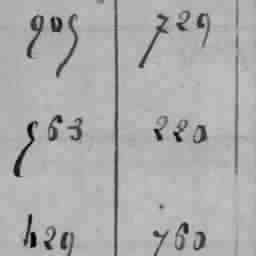 905 729
563 220
429 760